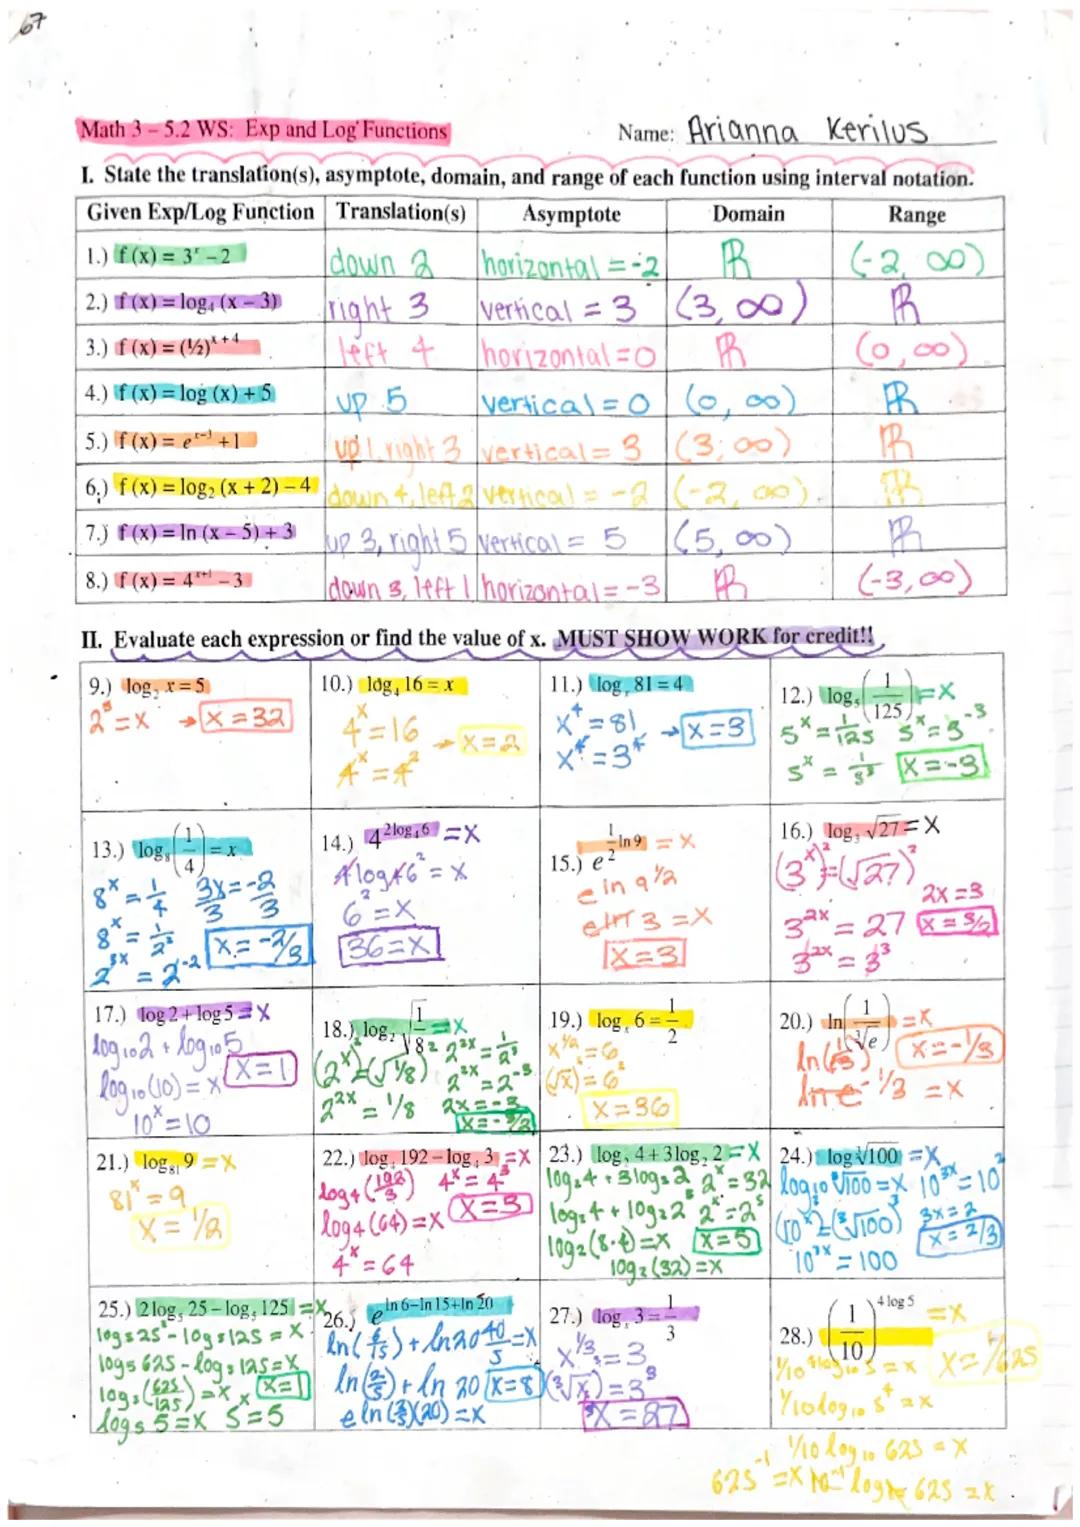 67
Math 3 – 5.2 WS: Exp and Log Functions
Name: Arianna Kerilus
I. State the translation(s), asymptote, domain, and range of each function using interval notation.
Given Exp/Log Function Translation(s) Asymptote Domain Range
1.) f (x) = 3ˣ – 2 down 2 horizontal = -2 ℝ (-2, ∞)
2.) f (x) = log₄ (x – 3) right 3 vertical = 3 (3, ∞) ℝ
3.) f (x) = (½)ˣ⁺⁴ left 4 horizontal = 0 ℝ (0, ∞)
4.) f (x) = log (x) + 5 up 5 vertical = 0 (0, ∞) ℝ
5.) f (x) = eˣ⁻³ + 1 up 1, right 3 vertical = 3 (3, ∞) ℝ
6.) f (x) = log₂ (x + 2) – 4 down 4, left 2 vertical = -2 (-2, ∞) ℝ
7.) f (x) = ln (x – 5) + 3 up 3, right 5 vertical = 5 (5, ∞) ℝ
8.) f (x) = 4ˣ⁺¹ – 3 down 3, left 1 horizontal = -3 ℝ (-3, ∞)
II. Evaluate each expression or find the value of x. MUST SHOW WORK for credit!!
9.) log₂ x = 5
2⁵ = x → x = 32
10.) log₄ 16 = x
4ˣ = 16
→ x = 2
4ˣ = 4²
11.) logₓ 81 = 4
x⁴ = 81
→ x = 3
x⁴ = 3⁴
12.) log₅ (1/125) = x
5ˣ = 1/125 5ˣ = 5⁻³
5ˣ = 1/5³ x = -3
13.) log₈ (1/4) = x
8ˣ = 1/4 3x/3 = -2/3
8ˣ = 1/2²
2³ˣ = 2⁻² x = -2/3
14.) 4^(2log₄6) = x
4log46² = x
6² = x
36 = x
15.) e^(½ ln 9) = x
e ln 9^½
e ln 3 = x
x = 3
16.) log₃ √27 = x
(3ˣ)² = (√27)²
2x = 3
3²ˣ = 27 x = 3/2
3²ˣ = 3³
17.) log 2 + log 5 = x
log₁₀2 + log₁₀5
log₁₀(10) = x x = 1
10ˣ = 10
18.) log₂ √(1/8) = x
(2ˣ)² = (√1/8)² 2²ˣ = 1/2³
2²ˣ = 2⁻³
2²ˣ = 1/8 2x = -3
x = -3/2
19.) logₓ 6 = 1/2
x^½ = 6
(√x)² = 6²
x = 36
20.) ln (1/∛e) = x
x = -1/3
ln e^-1/3 = x
21.) log₈₁ 9 = x
81ˣ = 9
x = 1/2
22.) log₄ 192 – log₄ 3 = x
log₄ (192/3) 4ˣ = 4³
log₄ (64) = x x = 3
4ˣ = 64
23.) log₂ 4 + 3 log₂ 2 = x
log₂4 + 3log₂2 2ˣ = 32
log₂4 + log₂2³ 2ˣ = 2⁵
log₂(8·4) = x x = 5
log₂(32) = x
24.) log ∛100 = x
log₁₀ ∛100 = x 10³ˣ = 10²
(10ˣ)³ = (∛100)³ 3x = 2
x = 2/3
10³ˣ = 100
25.) 2 log₅ 25 – log₅ 125 = x
log₅25² - log₅125 = x
log₅ 625 - log₅ 125 = x
log₅ (625/125) = x x = 1
log₅ 5 = x 5ˣ = 5
26.) e^(ln 6–ln 15+ln 20)
ln(6/15) + ln 20 40/5 = x
ln(2/5) + ln 20 x = 8
e ln (2/5)(20) = x
27.) logₓ 3 = 1/3
x^⅓ = 3
(∛x)³ = 3³
x = 27
28.) (1/10)^(4 log 5) = x
1/10 4log₁₀ 5 = x x = 1/625
1/10 log₁₀ 5⁴ = x
1/10 log₁₀ 625 = x
625⁻¹ = x 10⁻¹ log₁₀ 625 = x